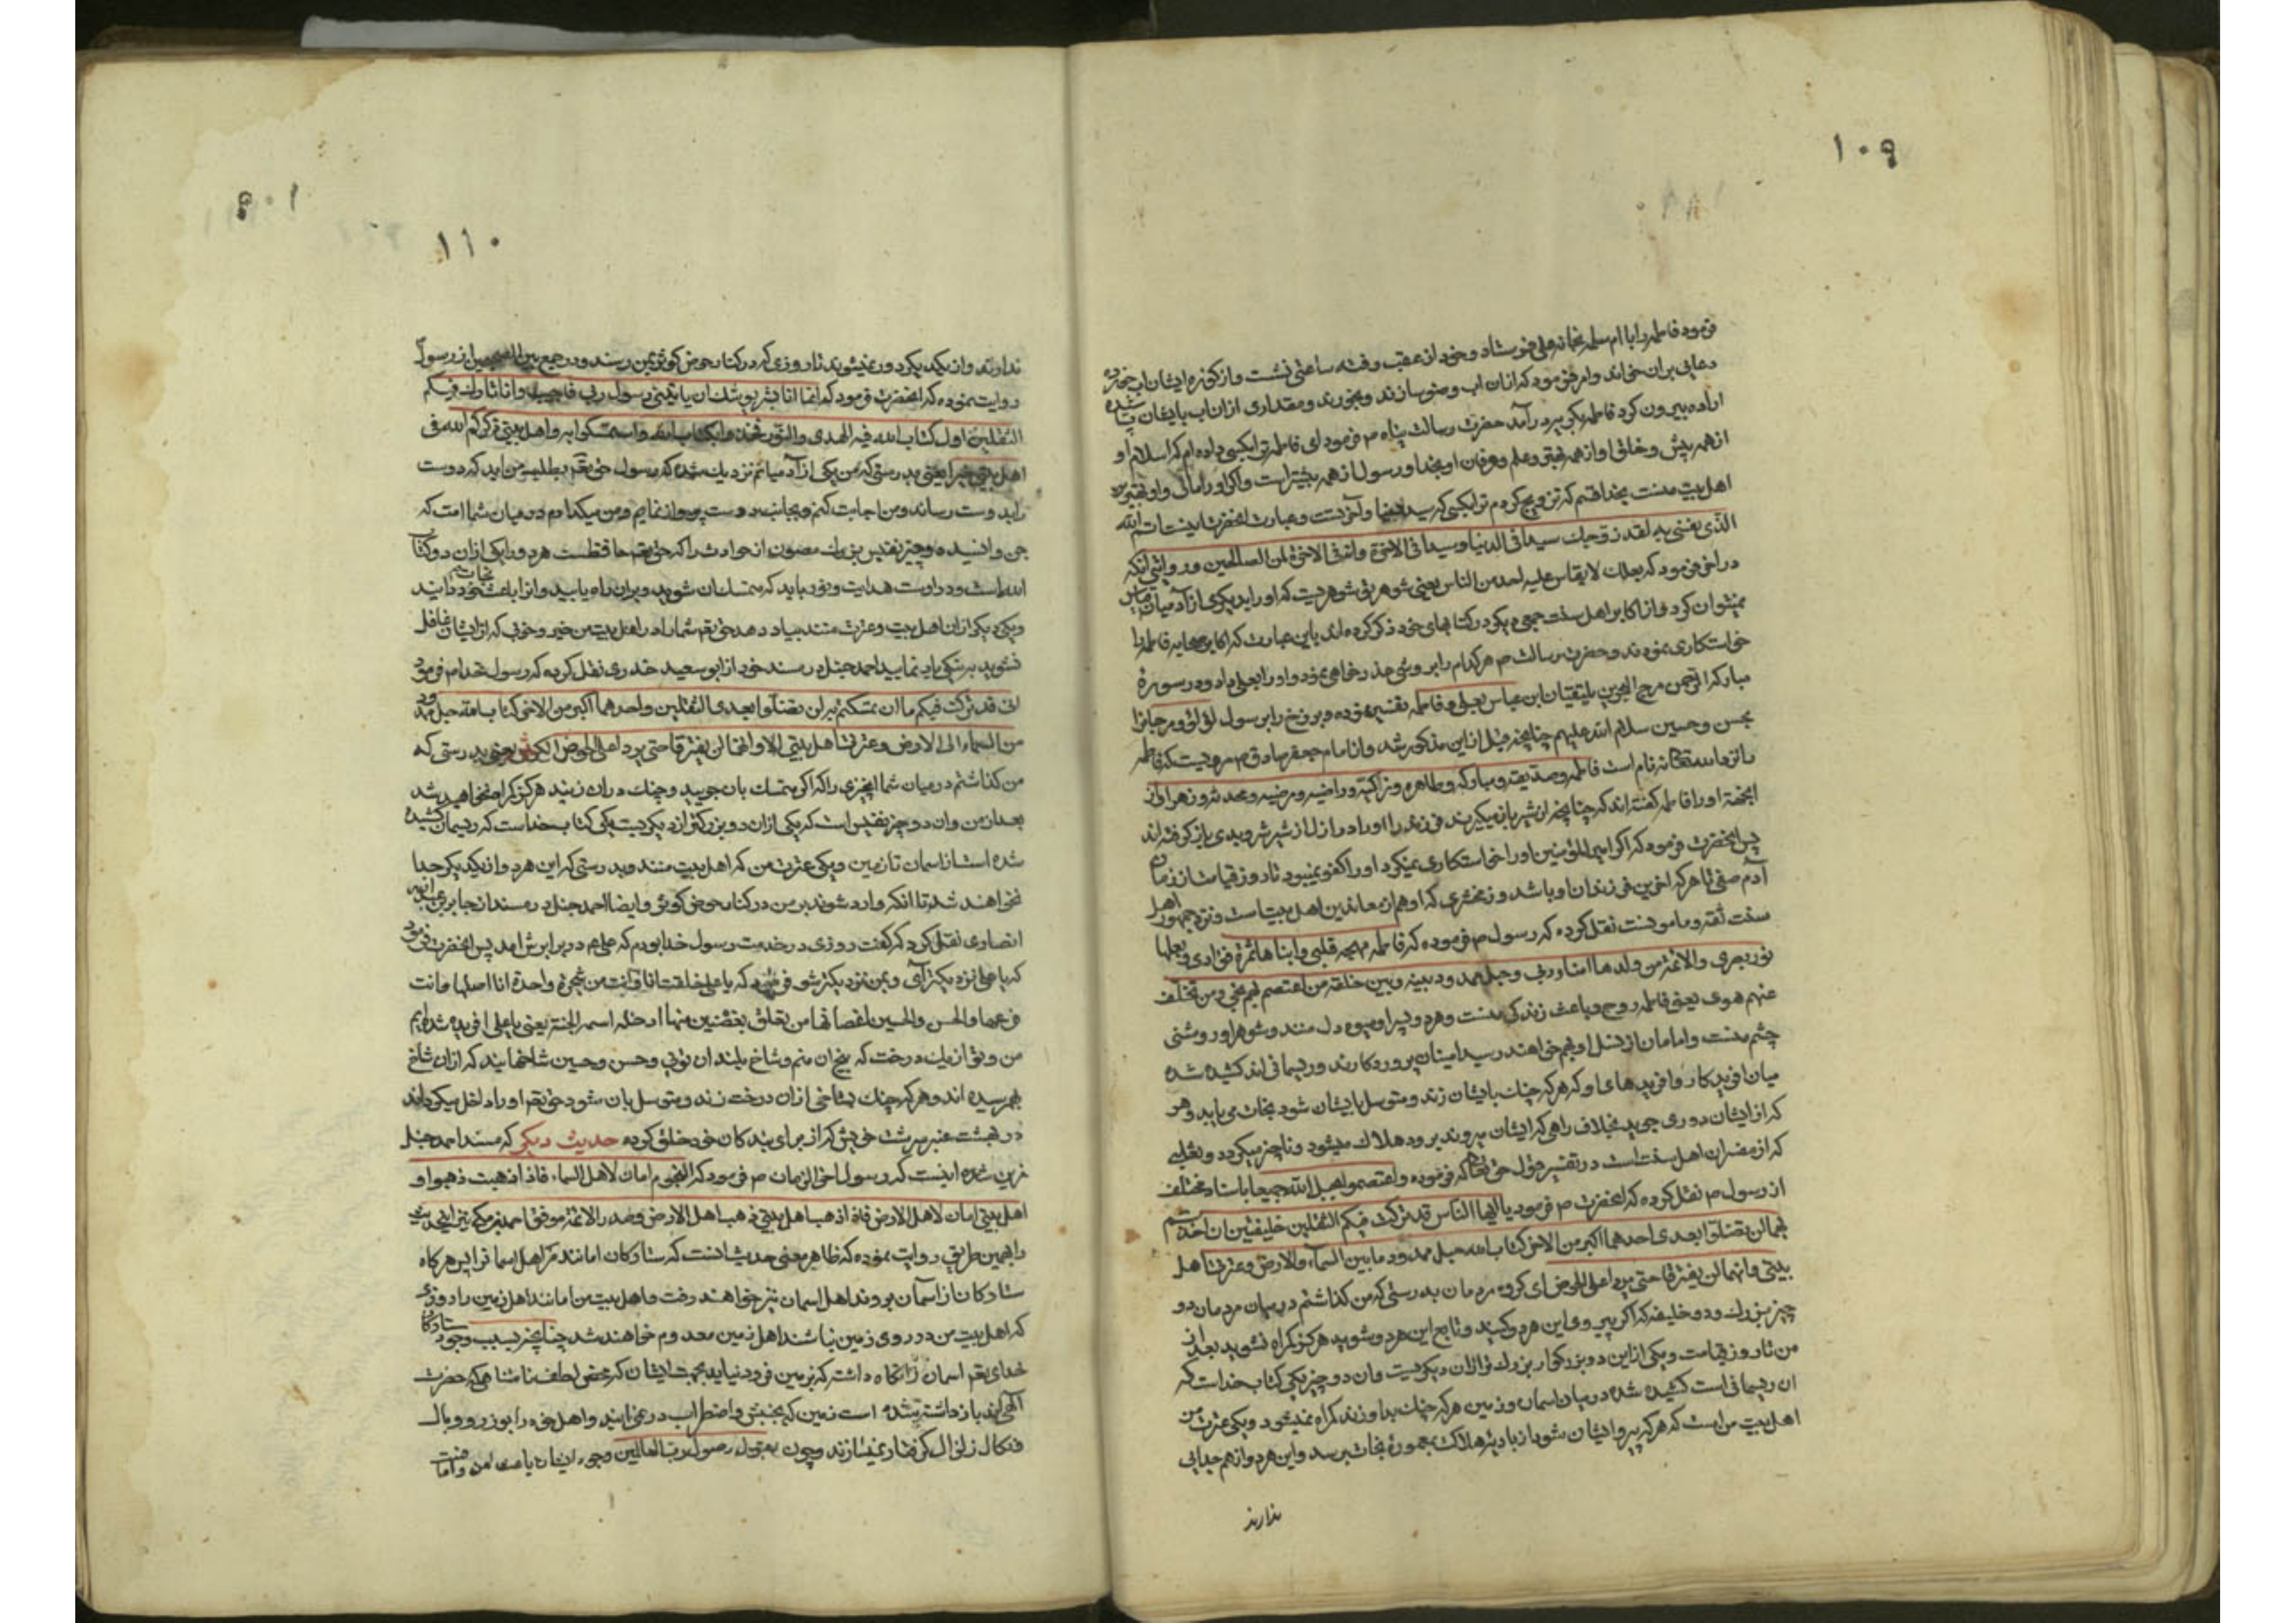 ١٠٩
فرمود فاطمه را با ام سلمه بخانه علی فرستاد و خود از عقب رفته ساعتی نشست و از کوزه ایشان آب خورده
دعایی بران خواند و امر فرمود که ازان اب وضو سازند و بخورند و مقداری ازان اب بایشان پاشیده
اراده بیرون کرد فاطمه بگریه درآمد حضرت رسالت پناه م فرمود ای فاطمه ترا بکسی داده ام که اسلام او
از همه پیش و خلق او از همه بهتر و علم و عرفان او بخدا و رسول از همه بیشتر است
اهل بیت منست بخدا قسم که تزویج کردم ترا بکسی که سید دنیا و آخرتست و عبارت انحضرت اینست اتم الله
الذی نفسی بیده لقد زوجتك سیدا فی الدنیا و سیدا فی الاخرة و انه فی الاخرة لمن الصالحین و در
فرمود که بعلك لا یقاس علیه احد من الناس یعنی شوهر تو شوهریست که او را بدیکری از آدمیان قیاس
نمیتوان کرد و از اکابر اهل سنت جمعی دیکر در کتابهای خود ذکر کرده اند باین عبارت که اکابر صحابه فاطمه را
خواستکاری نمودند و حضرت رسالت م هر کدام را بروشی عذر خواهی نمود و او را بعلی داد و در سورهٔ
مبارکه الرحمن مرج البحرین یلتقیان ابن عباس بعلی و فاطمه تفسیر نموده و برزخ را برسول و لؤلؤ و مرجانرا
بحسن و حسین سلام الله علیهم چنانچه قبل ازین مذکور شد و از امام جعفر صادق م مرویست که فاطمه
را نزد الله نه نام است فاطمه و صدیقه و مبارکه و طاهره و زاکیه و راضیه و مرضیه و محدثه و زهرا و از
انجهة او را فاطمه کفته اند که چنانچه از شیر باز میکیرند فرزند را او را در ازل از شر و بدی باز کرفته اند
پس انحضرت فرمود که اکر امیر المؤمنین او را خواستکاری نمیکرد او را کفو نمیبود تا روز قیامت از زمان
آدم صفی تا هر که اخرین فرزندان او باشد و زمخشری که او هم از معاندین اهل بیتست و نزد جمهور اهل
سنت ثقه و مامونست نقل کرده که رسول م فرموده که فاطمه مهجه قلبی و ابناها ثمرة فؤادی و بعلها
نور بصری و الائمة من ولدها امناء ربی و حبل ممدود بینه و بین خلقه من اعتصم بهم نجی و من تخلف
عنهم هوی یعنی فاطمه روح و باعث زندکی منست و هر دو پسر او میوه دل منند و شوهر او روشنی
چشم منست و امامان از نسل او بهم خواهند رسید امینان پروردکارند و ریسمانی اند کشیده شده
میان افریدکار و افریدهای او که هر که چنك بایشان زند و متوسل بایشان شود نجات می یابد و هر
که از ایشان دوری جوید بخلاف راهی که ایشان میروند برود هلاك میشود و ناچیز میکردد و ثعلبی
که از مفسران اهل سنت است در تفسیر قول حق تعالی که فرموده و اعتصموا بحبل الله جمیعا باسناد مختلف
از رسول م نقل کرده که انحضرت م فرمود یا ایها الناس قد ترکت فیکم الثقلین خلیفتین ان اخذتم
بهما لن تضلوا بعدی احدهما اکبر من الاخر کتاب الله حبل ممدود ما بین السماء و الارض و عترتی اهل
بیتی و انهما لن یفترقا حتی یردا علی الحوض ای کروه مردمان بدرستی که من کذاشتم در میان مردمان دو
چیز بزرك و دو خلیفه که اکر پیروی این هر دو کنید و تابع این هر دو شوید هرکز کمراه نشوید بعد از
من تا روز قیامت و یکی ازین دو بزرکوار بزرك تر ازان دیکریست و ان دو چیز یکی کتاب خداست که
ان ریسمانی است کشیده شده در میان اسمان و زمین هر که چنك بدو زند کمراه نمیشود و یکی عترت من
اهل بیت من است که هر که پیرو ایشان شود از بادیه هلاکت بمعموره نجات میرسد و این هر دو از هم جدایی
ندارند
١٠٩
١١٠
ندارند و از یکدیکر دور نمیشوند تا روزی که در کنار حوض کوثر بمن رسند و در جمع بین از رسول
روایت نموده که انحضرت فرمود که انما انا بشر یوشك ان یاتینی رسول ربی فاجیب و انا تارك فیکم
الثقلین اول کتاب الله فیه الهدی و النور فخذوا بکتاب الله و استمسکوا به و اهل بیتی اذکرکم الله فی
اهل بیتی یعنی بدرستی که من یکی از آدمیانم نزدیك شده که رسول حق تعم بطلب من اید که دوست
را بدوست رساند و من اجابت کنم و بجانب دوست پرواز نمایم و من میکذارم در میان شما امت که
جن و انسید دو چیز نفیس بزرك مصون از حوادث را که حق تعم حافظ هر دو یکی ازان دو کتاب
الله است و دروست هدایت و نور باید که متمسك بان شوید و بران راه یابید و انرا باعث نجات خود دانید
و یکی دیکر ازان اهل بیت و عترت منند بیاد دهد حق تعم شما را در اهل بیت من خیر و خوبی که از ایشان غافل
نشوید بنیکی یاد نمایید احمد حنبل در مسند خود از ابو سعید خدری نقل کرده که رسول خدا م فرمود
انی قد ترکت فیکم ما ان تمسکتم به لن تضلوا بعدی الثقلین و احدهما اکبر من الاخر کتاب الله حبل ممدود
من السماء الی الارض و عترتی اهل بیتی الا و انهما لن یفترقا حتی یردا علی الحوض الکوثر یعنی بدرستی که
من کذاشتم در میان شما انچیزی را که اکر متمسك بان جویید و چنك دران زنید هرکز کمراه نخواهید شد
بعد از من و ان دو چیز نفیس است که یکی ازان دو بزرکتر از دیکریست یکی کتاب خداست که ریسمان کشیده
شده است از اسمان تا زمین و یکی عترت من که اهل بیت منند و بدرستی که این هر دو از یکدیکر جدا
نخواهند شد تا انکه وارد شوند بر من در کنار حوض کوثر و ایضا احمد حنبل در مسند از جابر بن عبد الله
انصاری نقل کرده که کفت روزی در خدمت رسول خدا بودم که علی م در برابرش امد پس انحضرت فرمود
که یا علی نزدیکتر آی و بمن نزدیکتر شو فرمود که یا علی خلقت انا و انت من شجرة واحدة انا اصلها و انت
فرعها و الحسن و الحسین اغصانها من تعلق بغصن منها ادخله الله الجنة یعنی یا علی افریده شده ایم
من و تو از یك درخت که بیخ ان منم و شاخ بلند ان تویی و حسن و حسین شاخهایند که ازان شاخ
بهم رسیده اند و هر که چنك بشاخی ازان درخت زند و متوسل بان شود حق تعم او را داخل میکرداند
در بهشت عنبر سرشت خویش که از برای بندکان خود خلق کرده حدیث دیکر که مسند احمد حنبل
اینست که رسول اخر الزمان م فرمود که النجوم امان لاهل السماء فاذا ذهبت ذهبوا و
اهل بیتی امان لاهل الارض فاذا ذهب اهل بیتی ذهب اهل الارض و صدر الائمه موفق احمد مکی نیز این حدیث
را بهمین طریق روایت نموده که ظاهر معنی حدیث اینست که ستارکان امانند مر اهل اسمانرا پس هرکاه
ستارکان از آسمان بروند اهل اسمان نیز خواهند رفت و اهل بیت من امانند اهل زمین را روزی
که اهل بیت من در روی زمین نباشند اهل زمین معدوم خواهند شد چنانچه بسبب وجود ستارکان
خدای تعم اسمان را نکاه داشته که بزمین فرود نیاید بجهت ایشان که محض لطف نامتناهی حضرت
الهی اند باز داشته شده است زمین که بجنبش و اضطراب در نمی ایند و اهل خود را بوزر و وبال
و نکال زلزال کرفتار نمیسازند و چون بقول رسول رب العالمین وجود ایشان